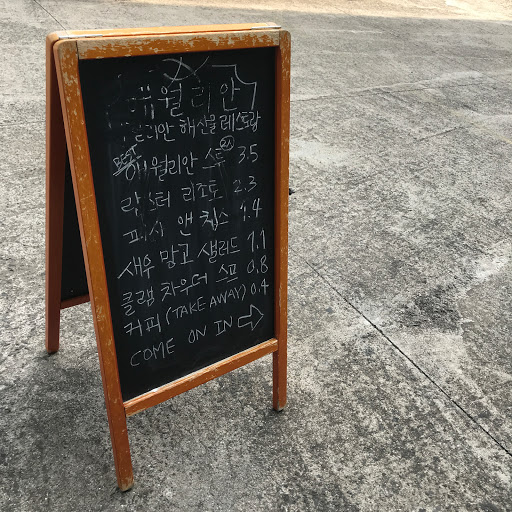 해월리안
해월리안 해산물 레스토랑
BEST 해월리안 스튜 3.5
랍스터 리조토 2.3
피시 앤 칩스 1.4
새우 망고 샐러드 1.1
클램 차우더 스프 0.8
커피 (TAKE AWAY) 0.4
COME ON IN